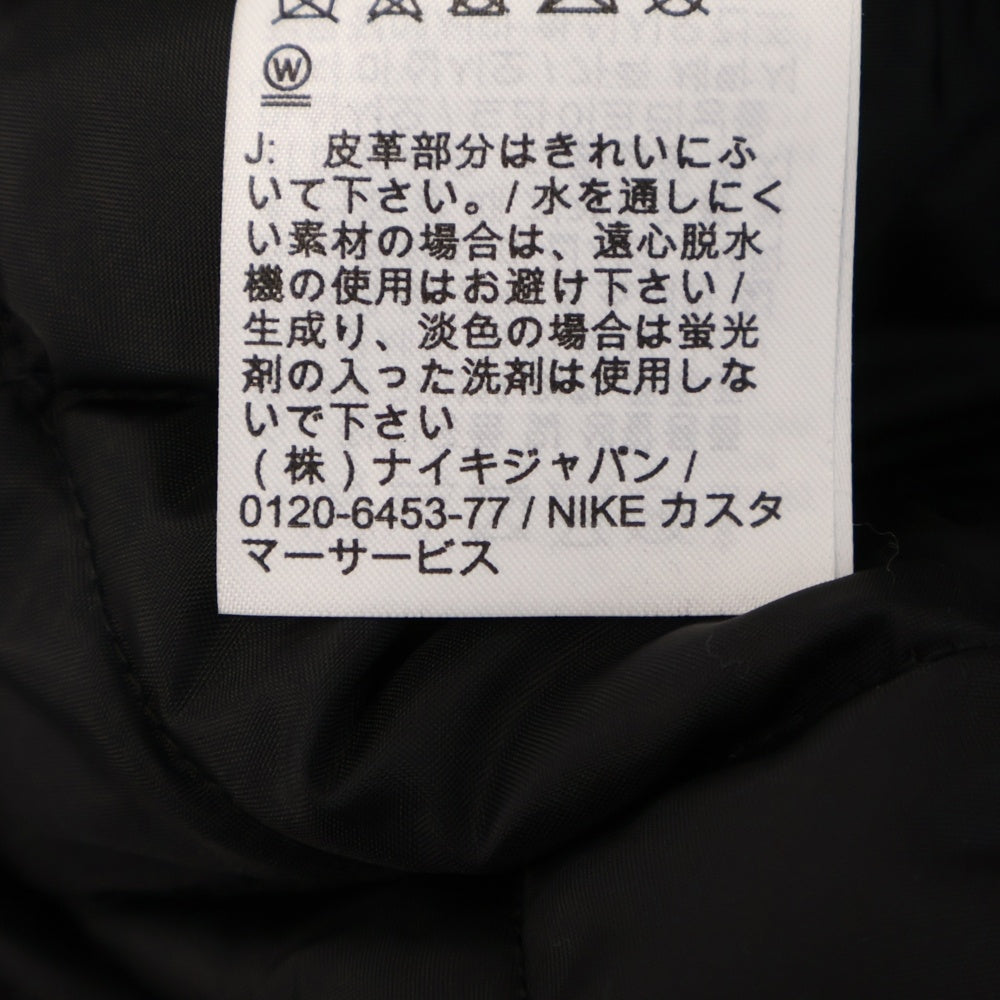 W
J: 皮革部分はきれいにふ
いて下さい。/ 水を通しにく
い素材の場合は、遠心脱水
機の使用はお避け下さい /
生成り、淡色の場合は蛍光
剤の入った洗剤は使用しな
いで下さい
( 株 ) ナイキジャパン /
0120-6453-77 / NIKE カスタ
マーサービス